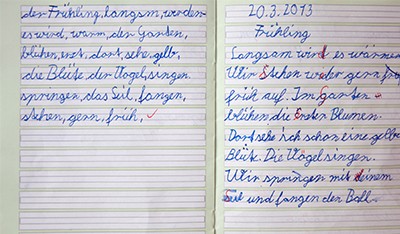 der Frühling, langsam, werden
es wird, warm, der Garten,
blühen, erst, dort, sehe, gelb,
die Blüte der Vogel, singen
springen, das Seil, fangen,
stehen, gern, früh,
20.3.2013
Frühling
Langsam wird es wärmer
Wir stehen wieder gern
früh auf. Im Garten
blühen die Ersten Blumen.
Dort sehe ich schon eine gelbe
Blüte. Die Vögel singen.
Wir springen mit deinem
Seil und fangen den Ball.